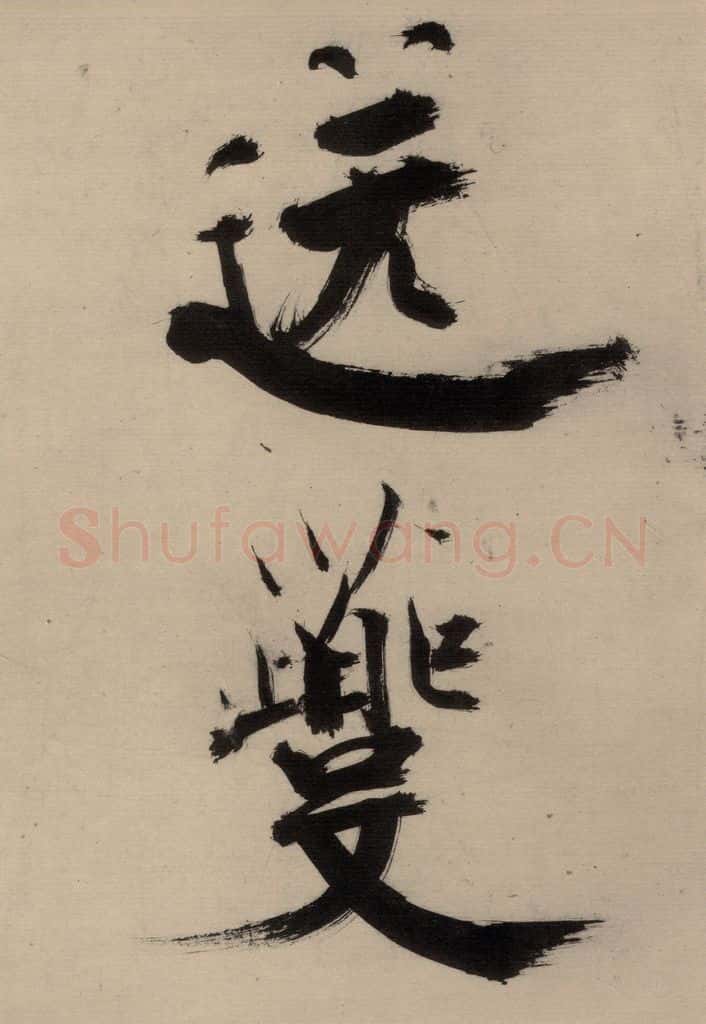 送
夔
Shufawang.CN